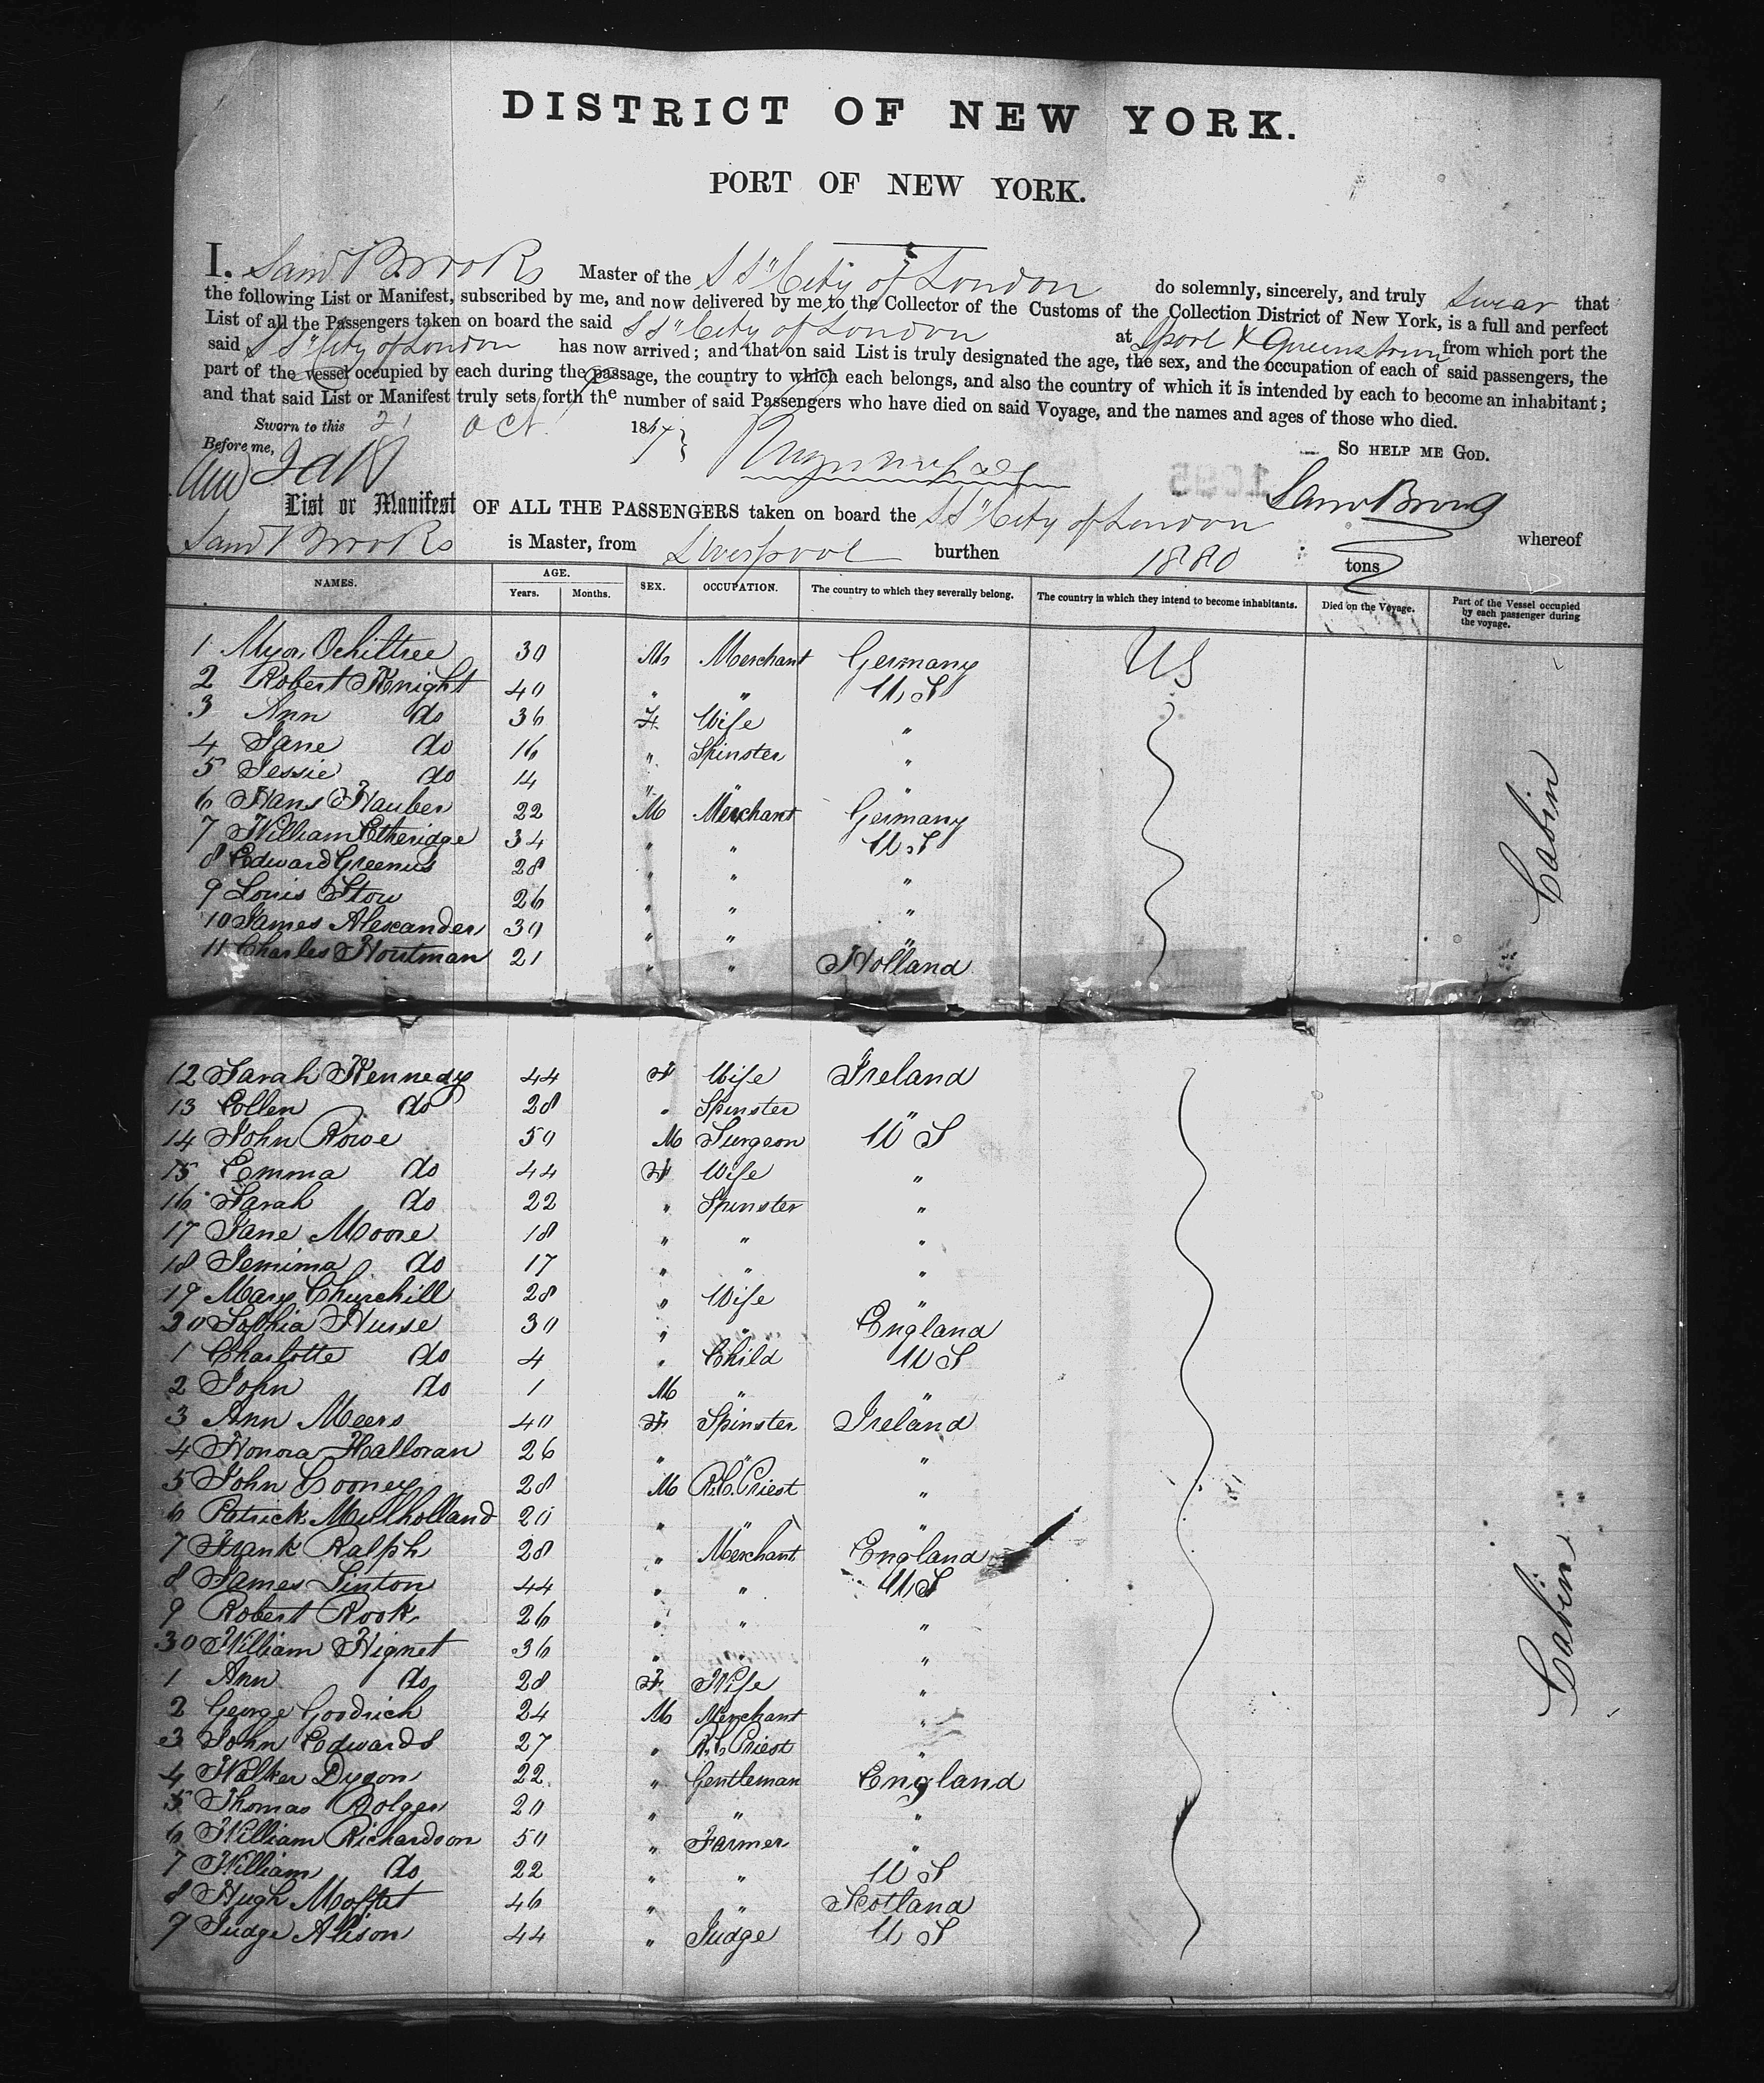 DISTRICT OF NEW YORK.
PORT OF NEW YORK.
I, Saml Brooks Master of the SS "City of London do solemnly, sincerely, and truly swear that
the following List or Manifest, subscribed by me, and now delivered by me to the Collector of the Customs of the Collection District of New York, is a full and perfect
List of all the Passengers taken on board the said SS "City of London at Lpool & Queenstown from which port the
said SS "City of London has now arrived; and that on said List is truly designated the age, the sex, and the occupation of each of said passengers, the
part of the vessel occupied by each during the passage, the country to which each belongs, and also the country of which it is intended by each to become an inhabitant;
and that said List or Manifest truly sets forth the number of said Passengers who have died on said Voyage, and the names and ages of those who died.
Sworn to this 21 Oct. 1867
So help me God.
Before me,
Saml Brooks
List or Manifest OF ALL THE PASSENGERS taken on board the SS "City of London whereof
Saml Brooks is Master, from Liverpool burthen 1880 tons
NAMES. AGE. Years. Months. SEX. OCCUPATION. The country to which they severally belong. The country in which they intend to become inhabitants. Died on the Voyage. Part of the Vessel occupied by each passenger during the voyage.
1 Ochiltree 30 M Merchant Germany US
2 Robert Knight 40 " " U.S
3 Ann do 36 F Wife "
4 Jane do 16 " Spinster "
5 Jessie do 14 " "
6 Hans Hauber 22 M Merchant Germany
7 William Etheridge 34 " " U.S
8 Edward Greenus 28 " " "
9 Louis Stow 26 " " "
10 James Alexander 30 " " "
11 Charles Houtman 21 " " Holland
Cabin
12 Sarah Kennedy 44 F Wife Ireland
13 Ellen do 28 " Spinster "
14 John Rowe 50 M Surgeon U S
15 Emma do 44 F Wife "
16 Sarah do 22 " Spinster "
17 Jane Moore 18 " " "
18 Jemima do 17 " " "
19 Mary Churchill 28 " Wife "
20 Sophia Hurse 30 " " England
1 Charlotte do 4 " Child U S
2 John do 1 M " "
3 Ann Meers 40 F Spinster Ireland
4 Honora Halloran 26 " " "
5 John Cooney 28 M R.C. Priest "
6 Patrick Mulholland 20 " " "
7 Frank Ralph 28 " Merchant England
8 James Linton 44 " " U.S
9 Robert Rook 26 " " "
30 William Hignet 36 " "
1 Ann do 28 F Wife "
2 George Goodrich 24 M Merchant "
3 John Edwards 27 " R.C. Priest "
4 Walker Dyson 22 " Gentleman England
5 Thomas Bolger 20 " " "
6 William Richardson 50 " Farmer "
7 William do 22 " " U S
8 Hugh Moffat 46 " " Scotland
9 Judge Alison 44 " Judge U S
Cabin